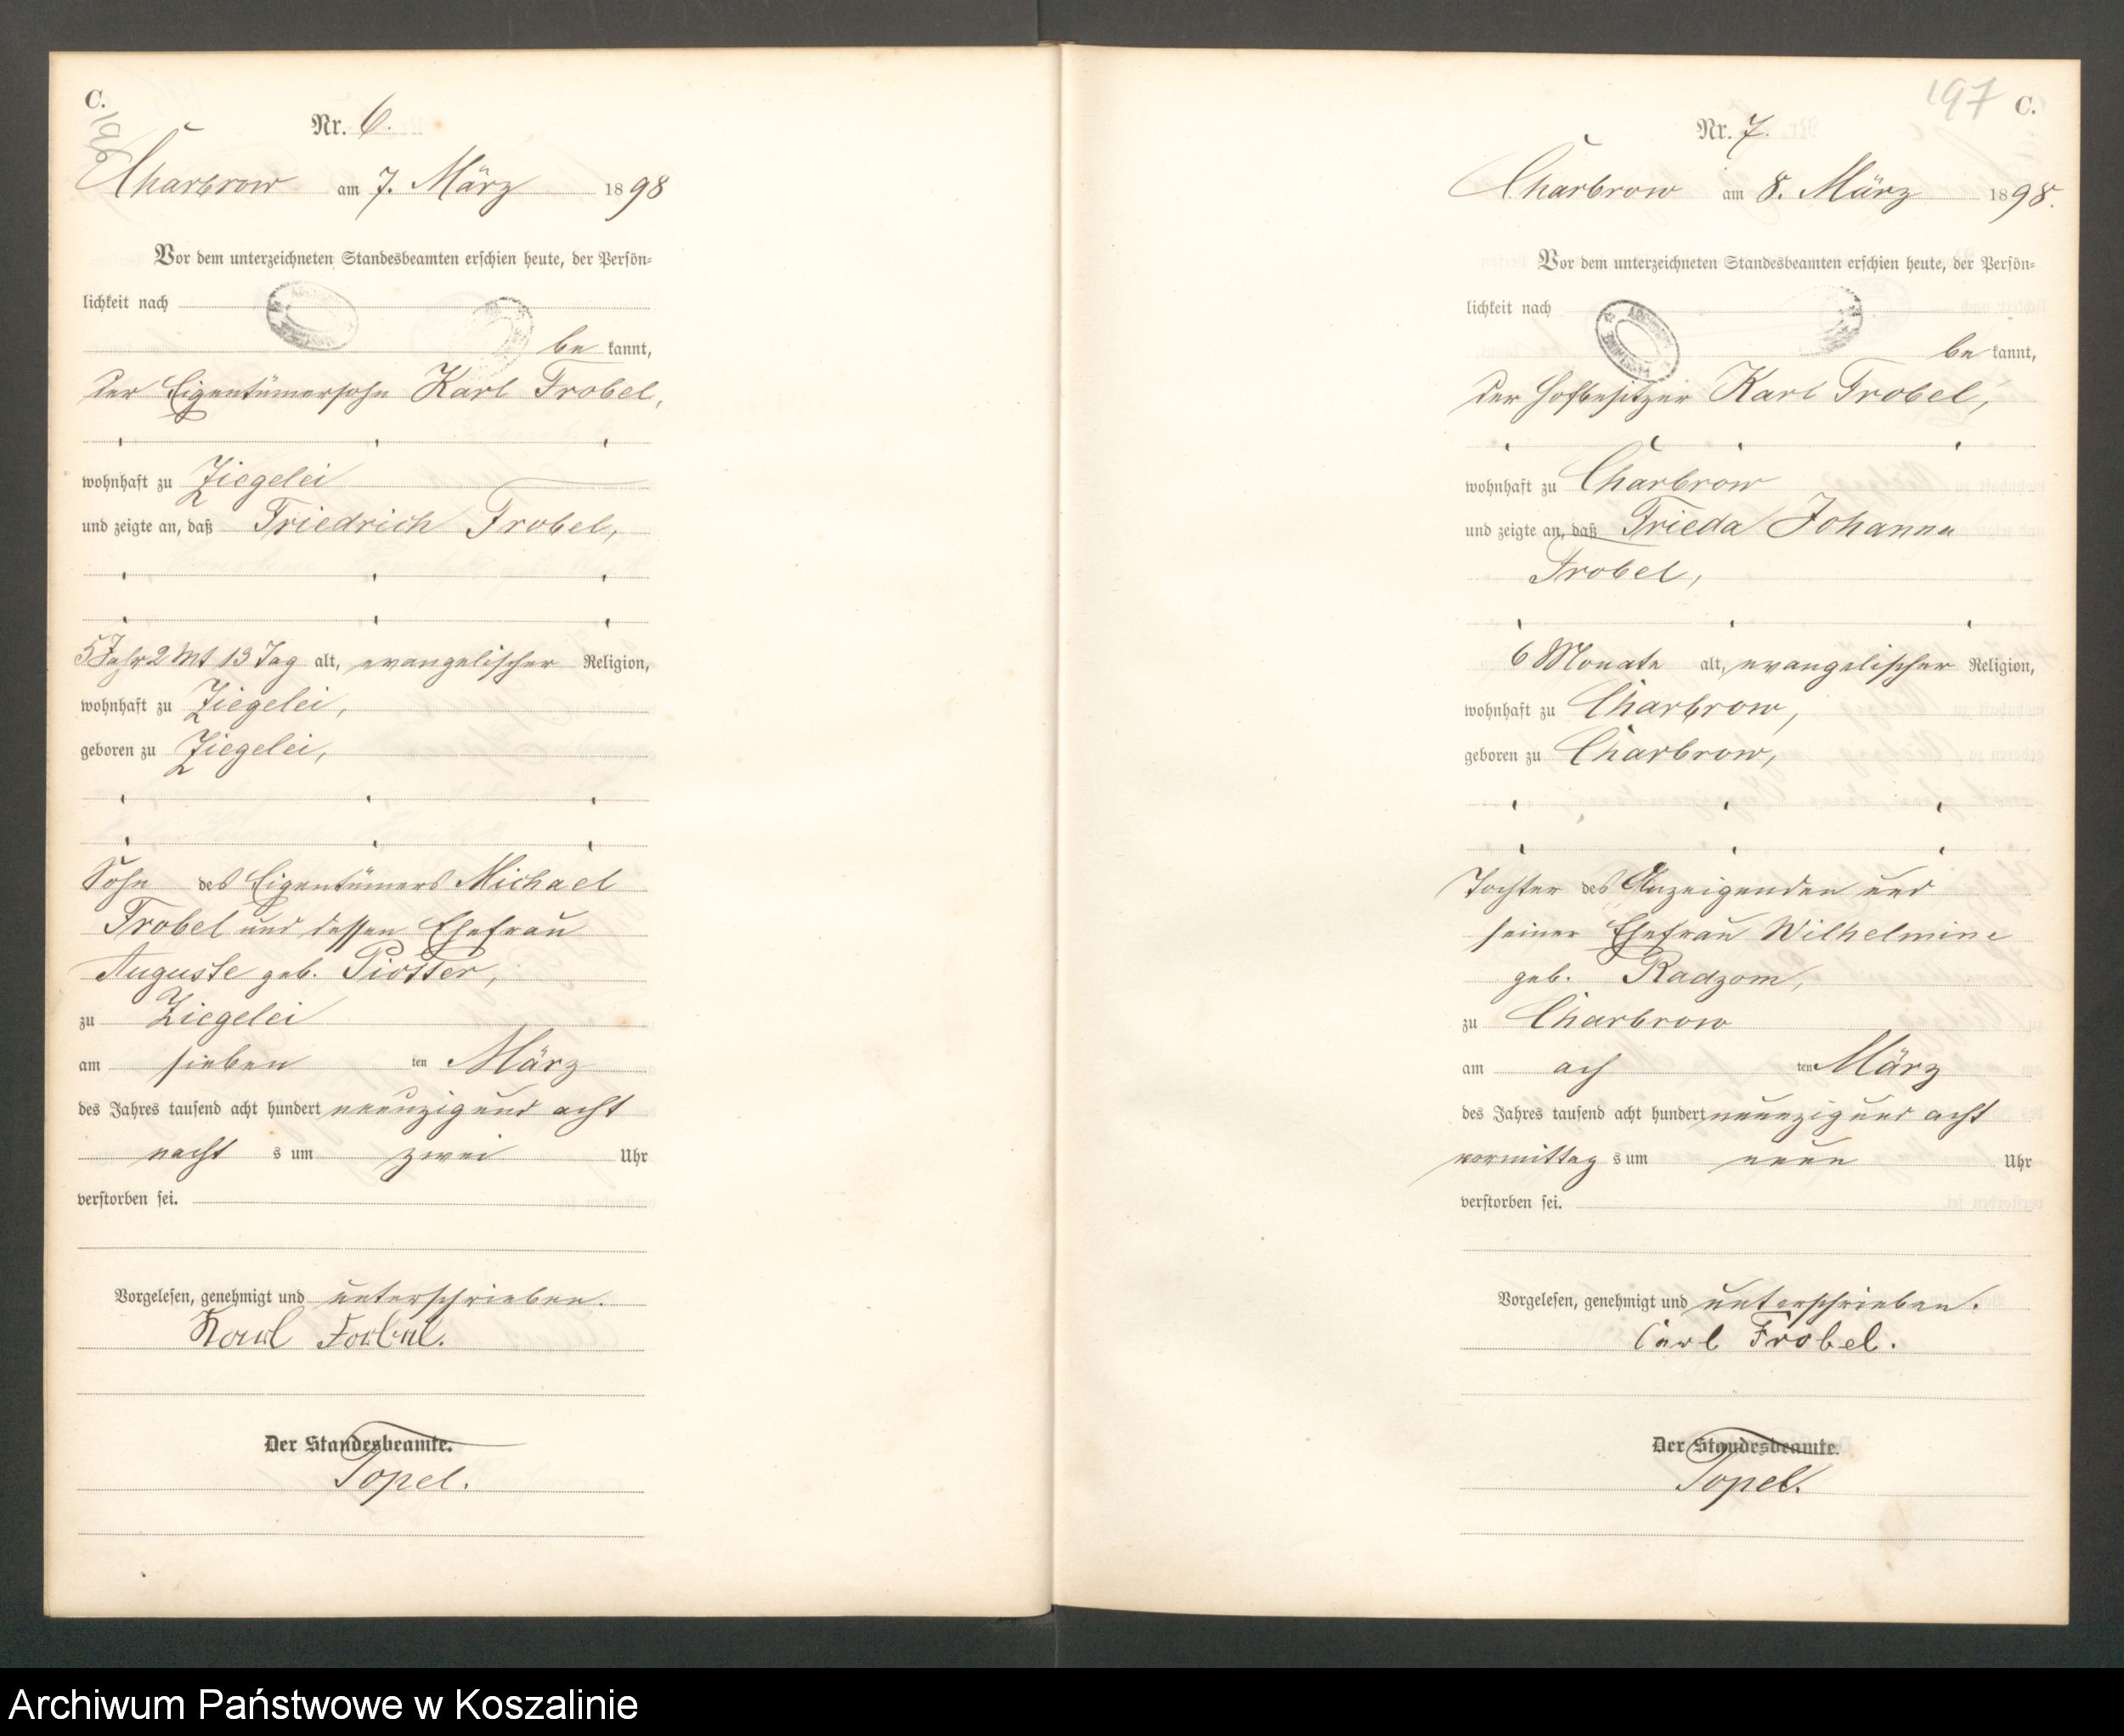 C.
196
Nr. 6.
Charbrow am 7. März 1898
Vor dem unterzeichneten Standesbeamten erschien heute, der Persön-
lichkeit nach
be kannt,
der Eigentümersohn Karl Frobel,
wohnhaft zu Ziegelei
und zeigte an, daß Friedrich Frobel,
5 Jahr 2 Mt 13 Tag alt, evangelischer Religion,
wohnhaft zu Ziegelei,
geboren zu Ziegelei,
Sohn des Eigentümers Michael
Frobel und dessen Ehefrau
Auguste geb. Piotter,
zu Ziegelei
am sieben ten März
des Jahres tausend acht hundert neunzig und acht
nacht s um zwei Uhr
verstorben sei.
Vorgelesen, genehmigt und unterschrieben.
Karl Frobel.
Der Standesbeamte.
Topel.
197 C.
Nr. 7.
Charbrow am 8. März 1898.
Vor dem unterzeichneten Standesbeamten erschien heute, der Persön-
lichkeit nach
be kannt,
der Hofbesitzer Karl Frobel,
wohnhaft zu Charbrow
und zeigte an, daß Frieda Johanna
Frobel,
6 Monate alt, evangelischer Religion,
wohnhaft zu Charbrow,
geboren zu Charbrow,
Tochter des Anzeigenden und
seiner Ehefrau Wilhelmine
geb. Radzom,
zu Charbrow
am ach ten März
des Jahres tausend acht hundert neunzig und acht
vormittag s um neun Uhr
verstorben sei.
Vorgelesen, genehmigt und unterschrieben.
Carl Frobel.
Der Standesbeamte.
Topel.
Archiwum Państwowe w Koszalinie